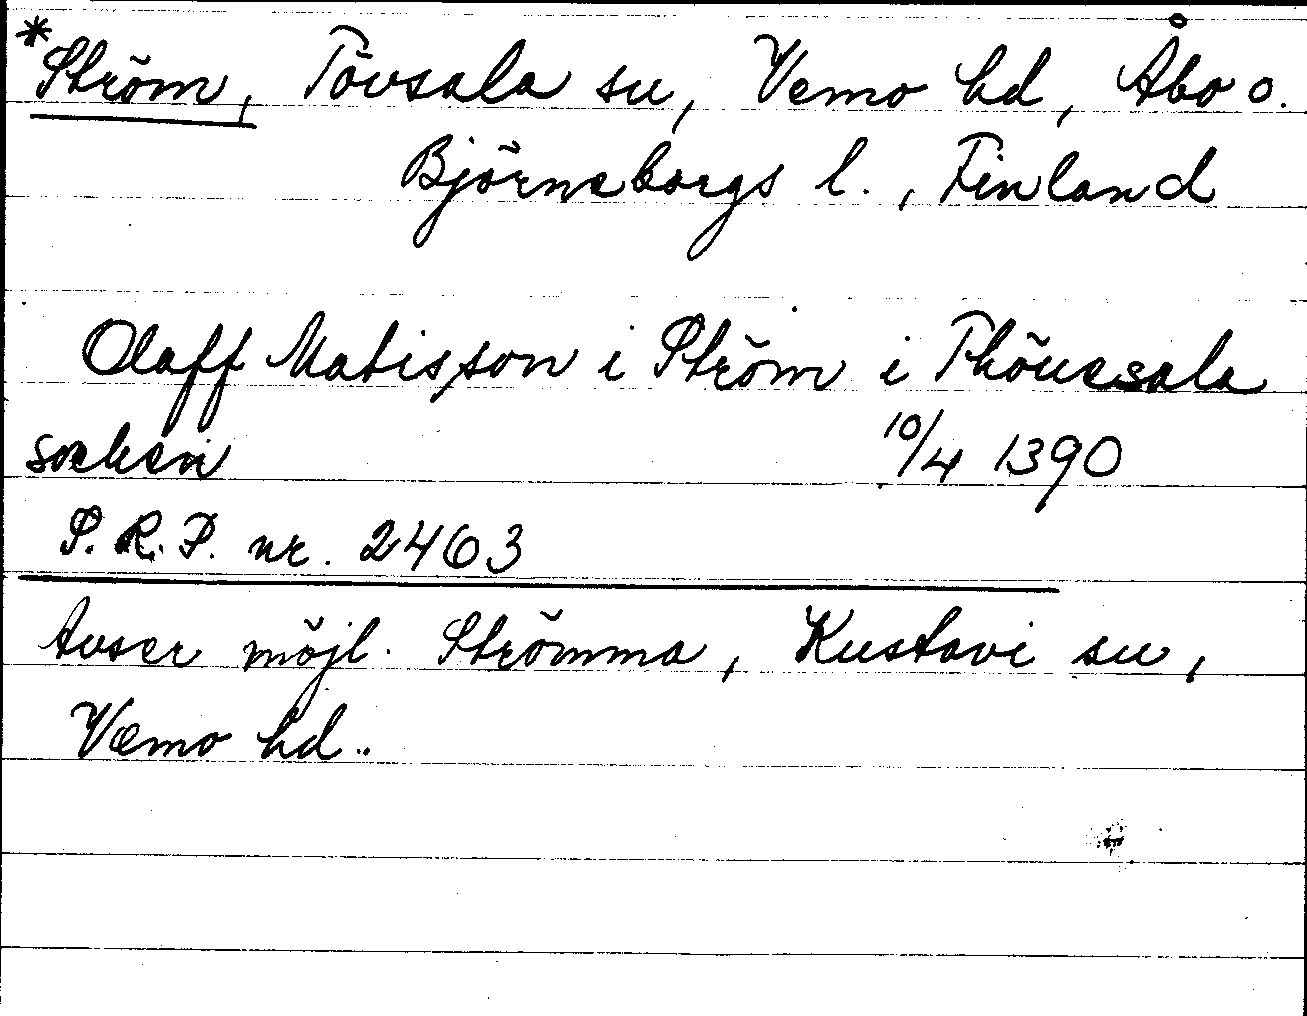 *Ström, Tövsala sn, Vemo hd, Åbo o.
Björneborgs l., Finland
Olaff Matisson i Ström i Thöuesala
socken 10/4 1390
S.R.P. nr. 2463
Avser möjl. Strömma, Kustavi sn,
Vemo hd..